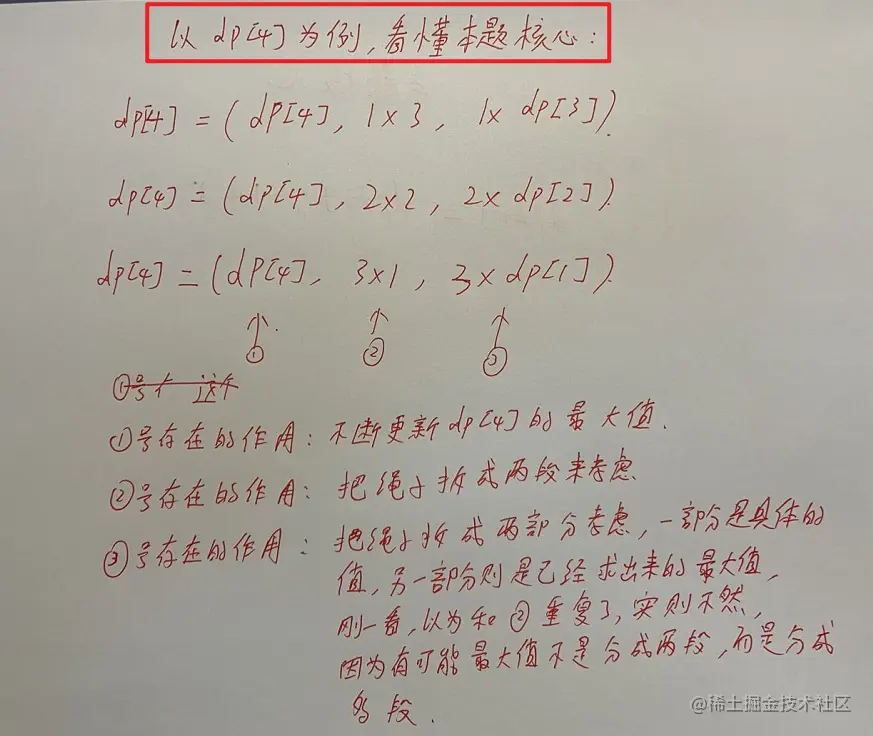 以 dp[4] 为例，看懂本题核心：
dp[4] = ( dp[4], 1×3, 1× dp[3] ).
dp[4] = (dp[4], 2×2, 2× dp[2] ).
dp[4] = (dP[4], 3×1, 3× dp[1] ).
① ② ③
①号存在的作用：不断更新dp[4]的最大值.
②号存在的作用：把绳子拆成两段来考虑.
③号存在的作用：把绳子拆成两部分考虑，一部分是具体的
值，另一部分则是已经求出来的最大值，
刚一看，以为和②重复了，实则不然，
因为有可能最大值不是分成两段，而是分成
多段.
@稀土掘金技术社区